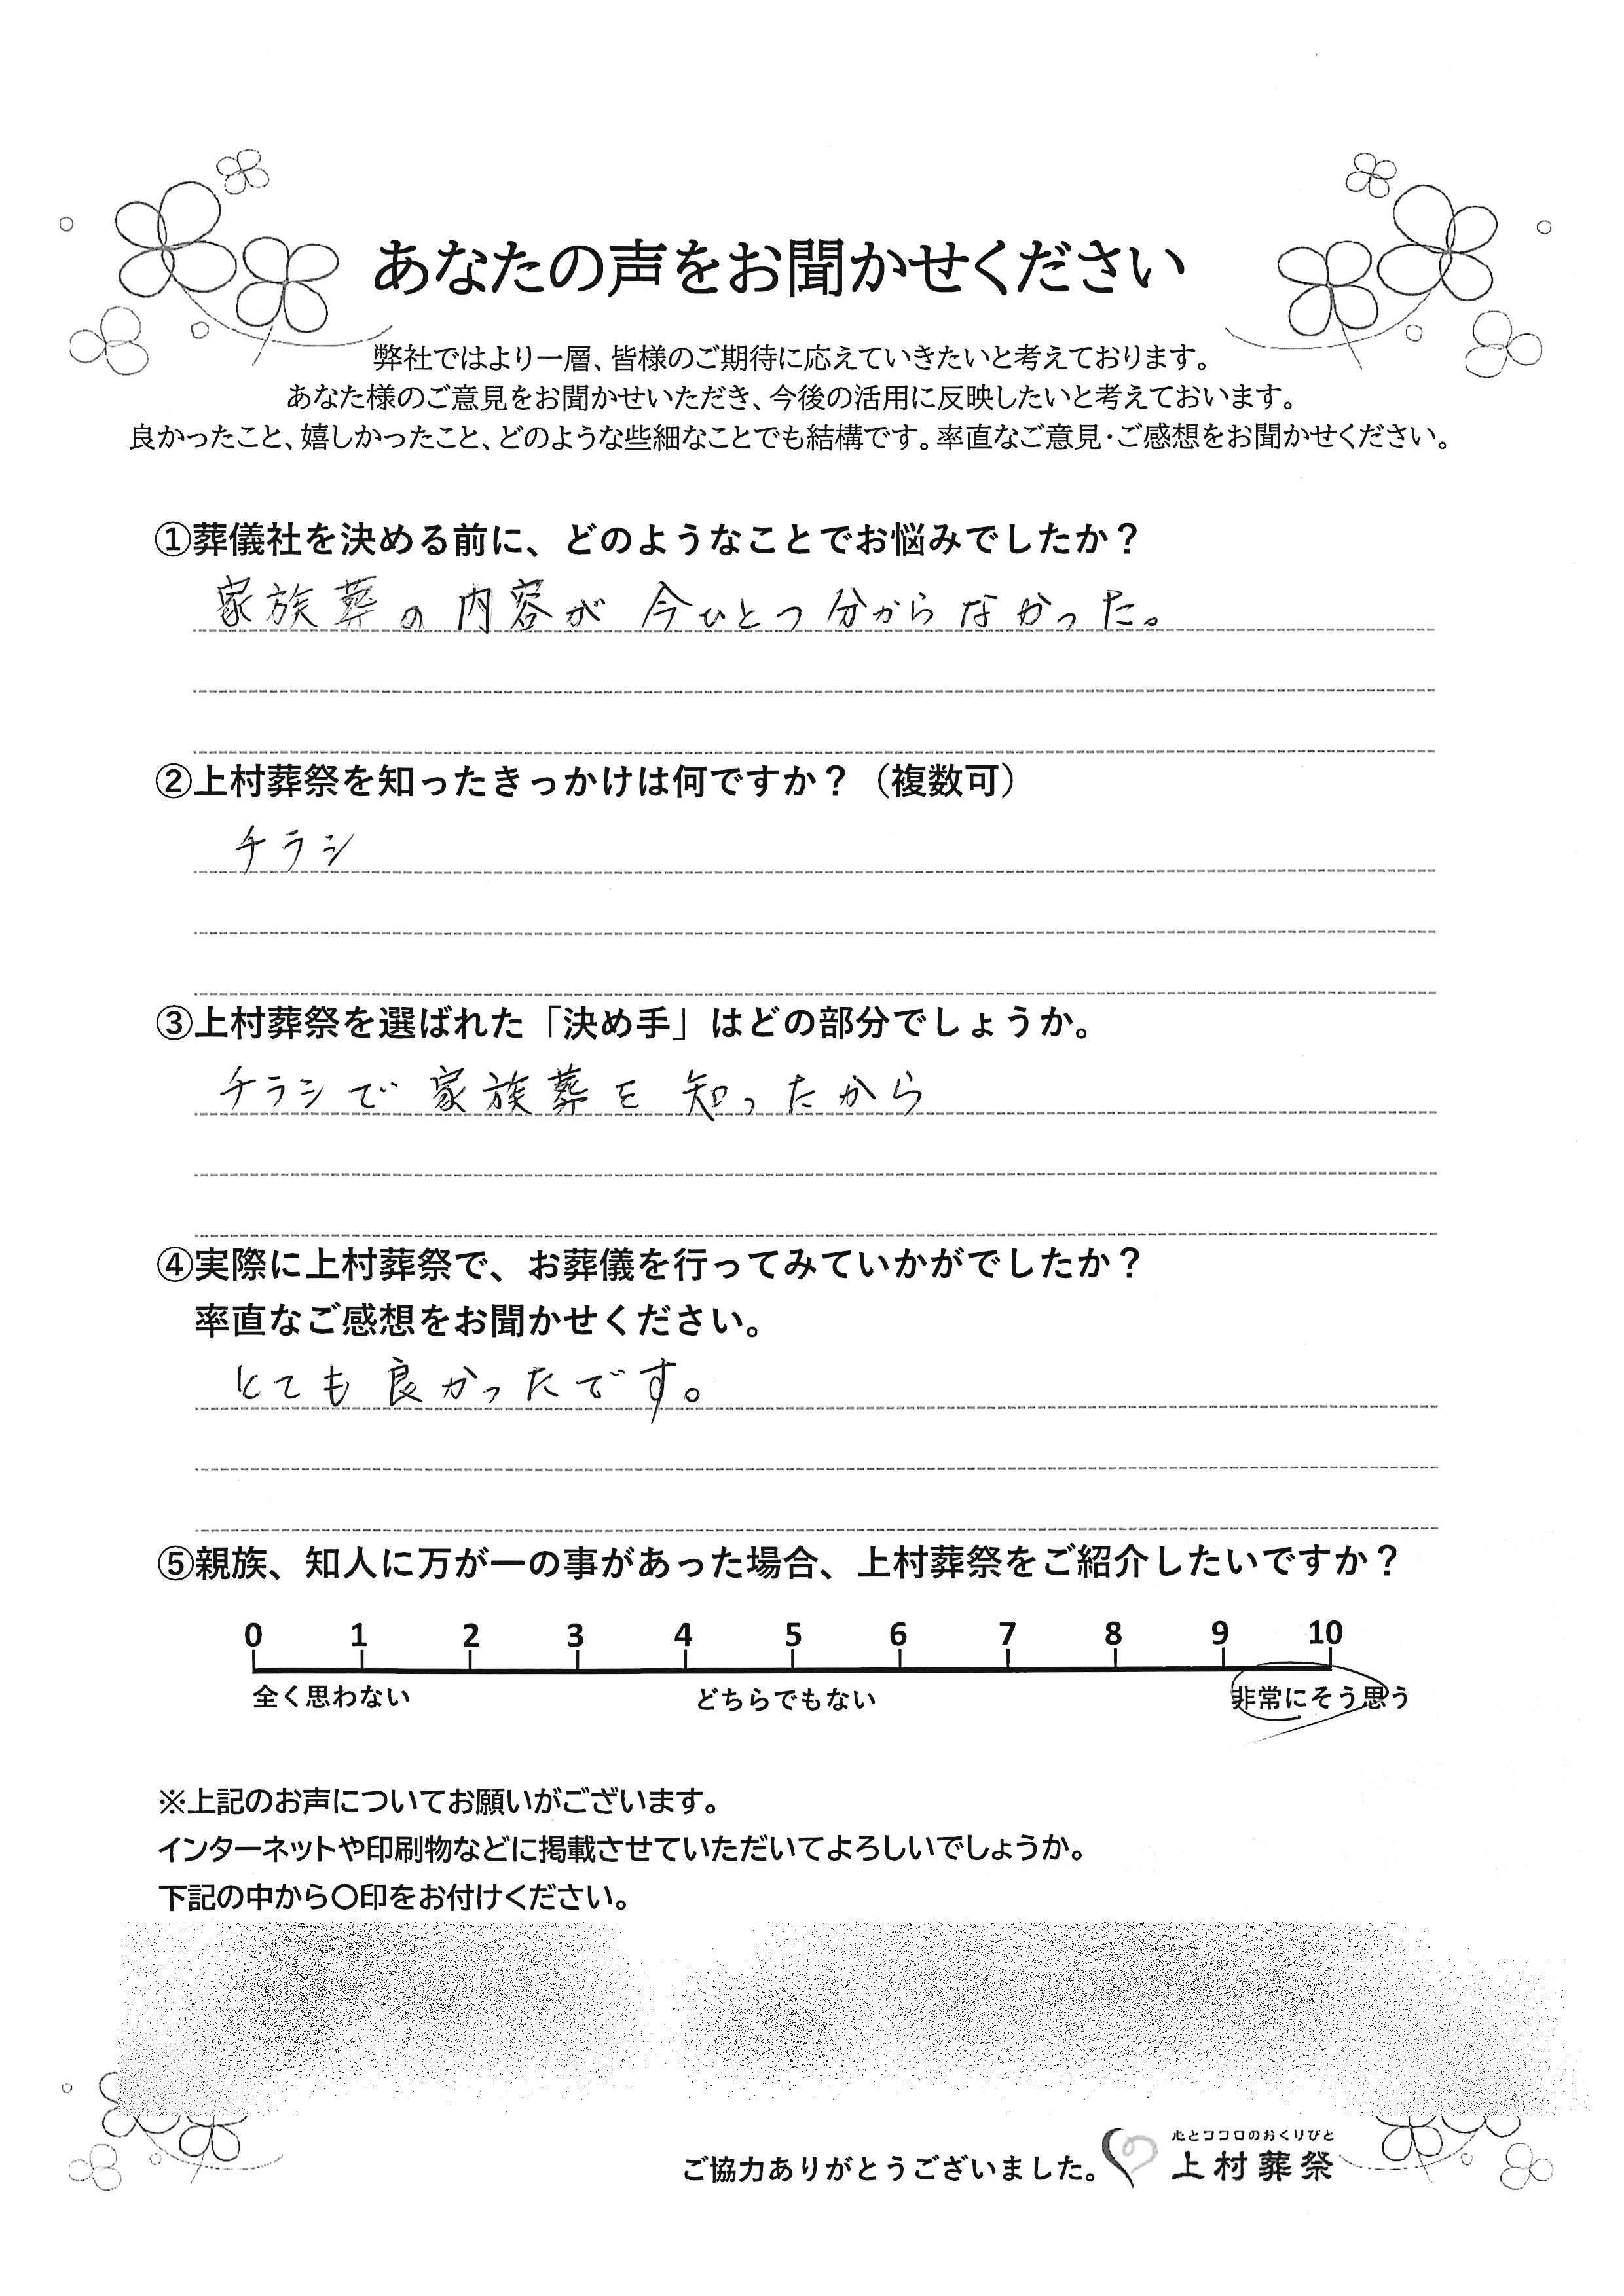 あなたの声をお聞かせください
弊社ではより一層、皆様のご期待に応えていきたいと考えております。
あなた様のご意見をお聞かせいただき、今後の活用に反映したいと考えておいます。
良かったこと、嬉しかったこと、どのような些細なことでも結構です。率直なご意見・ご感想をお聞かせください。
①葬儀社を決める前に、どのようなことでお悩みでしたか？
家族葬の内容が今ひとつ分からなかった。
②上村葬祭を知ったきっかけは何ですか？（複数可）
チラシ
③上村葬祭を選ばれた「決め手」はどの部分でしょうか。
チラシで家族葬を知ったから
④実際に上村葬祭で、お葬儀を行ってみていかがでしたか？
率直なご感想をお聞かせください。
とても良かったです。
⑤親族、知人に万が一の事があった場合、上村葬祭をご紹介したいですか？
0 1 2 3 4 5 6 7 8 9 10
全く思わない どちらでもない 非常にそう思う
※上記のお声についてお願いがございます。
インターネットや印刷物などに掲載させていただいてよろしいでしょうか。
下記の中から〇印をお付けください。
心とココロのおくりびと
ご協力ありがとうございました。 上村葬祭